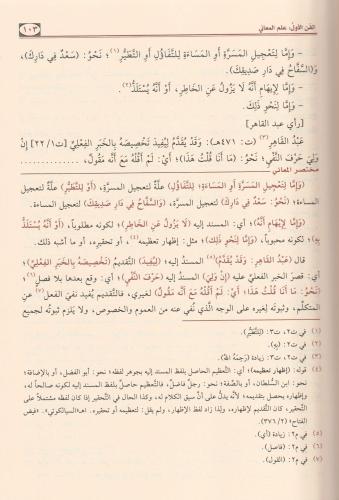 الفن الأول: علم المعاني
١٠٣
- وَإِمَّا لِتَعْجِيلِ المَسَرَّةِ أَوِ المَسَاءَةِ لِلتَّفَاؤُلِ أَوِ التَّطَيُّرِ(١)؛ نَحْوُ: (سَعْدٌ فِي دَارِكَ)،
وَ(السَّفَّاحُ فِي دَارِ صَدِيقِكَ).
- وَإِمَّا لِإِيهَامِ أَنَّهُ لَا يَزُولُ عَنِ الخَاطِرِ، أَوْ أَنَّهُ يُسْتَلَذُّ(٢).
- وَإِمَّا لِنَحْوِ ذَلِكَ.
[رأي عبد القاهر]
عَبْدُ القَاهِرِ(٣) (ت: ٤٧١هـ): وَقَدْ يُقَدَّمُ لِيُفِيدَ تَخْصِيصَهُ بِالخَبَرِ الفِعْلِيِّ [ت١/ ٢٢] إِنْ
وَلِيَ حَرْفَ النَّفْيِ؛ نَحْوُ: (مَا أَنَا قُلْتُ هَذَا)؛ أَيْ: لَمْ أَقُلْهُ مَعَ أَنَّهُ مَقُولٌ، ..............
مختصر المعاني
(وَإِمَّا لِتَعْجِيلِ المَسَرَّةِ أَوِ المَسَاءَةِ؛ لِلتَّفَاؤُلِ) علّةٌ لتعجيل المسرّة، (أَوِ لِلتَّطَيُّرِ) علّةٌ لتعجيل
المساءة؛ (نَحْوُ: سَعْدٌ فِي دَارِكَ) لتعجيل المسرة، (وَالسَّفَّاحُ فِي دَارِ صَدِيقِكَ) لتعجيل المساءة.
(وَإِمَّا لِإِيهَامِ أَنَّهُ)؛ أي: المسند إليه (لَا يَزُولُ عَنِ الخَاطِرِ)؛ لكونه مطلوبا، (أَوْ أَنَّهُ يُسْتَلَذُّ
بِهِ)؛ لكونه محبوبا، (وَإِمَّا لِنَحْوِ ذَلِكَ)؛ مثل: إظهار تعظيمه(٤)، أو تحقيره، أو ما أشبه ذلك.
قال (عَبْدُ القَاهِرِ: وَقَدْ يُقَدَّمُ) المسندُ إليه؛ (لِيُفِيدَ) التقديمُ (تَخْصِيصَهُ بِالخَبَرِ الفِعْلِيِّ)؛
أي: قصرَ الخبر الفعليِّ عليه (إِنْ وَلِيَ) المسندُ إليه (حَرْفَ النَّفْيِ)؛ أي: وقع بعدها بلا فصل(٦)؛
(نَحْوُ: مَا أَنَا قُلْتُ هَذَا؛ أَيْ: لَمْ أَقُلْهُ مَعَ أَنَّهُ مَقُولٌ) لغيري، فالتَّقديم يُفيد نفيَ الفعل(٧) عن
المتكلّم، وثبوتَه لغيره على الوجه الذي نُفي عنه من العموم والخصوص، ولا يلزم ثبوتُه لجميع
(١) في ت٢، ت٣: (لِلتَّطَيُّرِ).
(٢) في ت٢: (به).
(٣) في ت٢: زيادة (رَحِمَهُ اللهُ).
(٤) قوله: (إظهار تعظيمه)؛ أي: التَّعظيم الحاصل بلفظ المسند إليه بجوهر لفظه؛ نحو: أبو الفضل، أو بالإضافة؛
نحو: ابن السُّلطان، أو بالصّفة؛ نحو: رجلٌ فاضل، فالتعظيم حاصلٌ بلفظ المسند إليه لكونه صالحا له،
وإظهاره يحصل بتقديمه؛ لأنّه يدلُّ على أنَّ سبق الكلام له، وكذا الحال في التحقير إذا كان لفظه مشتملا على
التَّحقير، كان التقديم لإظهاره، ولذا زاد لفظ الإظهار، ولم يقل: لتعظيمه أو تحقيره. اهـ«السيالكوتي». «فيض
الفتاح» (٢/ ٣٧٦).
(٥) في م٢: زيادة (أي).
(٦) في م٢: (فاصل).
(٧) في م٢: (القول).